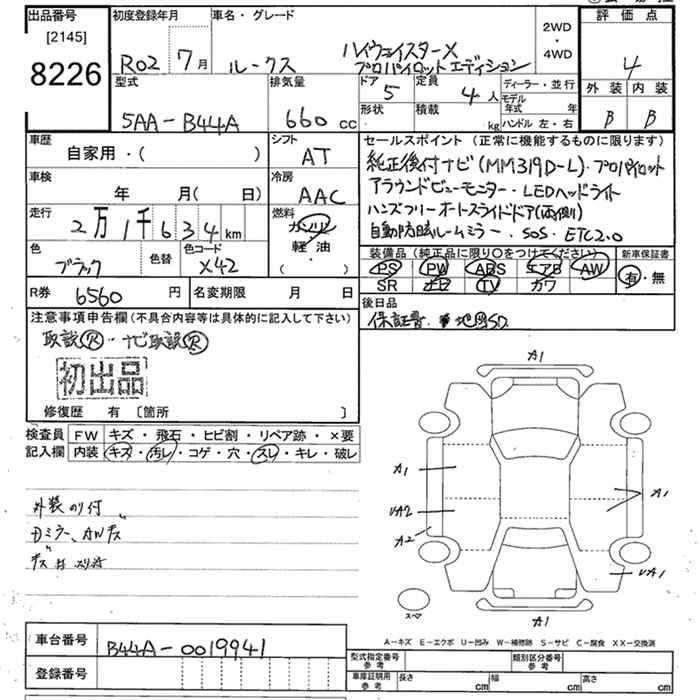 出品番号
[2145]
8226
初度登録年月
R02 7月
車名・グレード
ルークス
ハイウェイスターX
プロパイロットエディション
2WD
・
4WD
評価点
4
外装 内装
B B
型式
5AA-B44A
排気量
660 cc
ドア
5
定員
4人
形状
積載
kg
ディーラー・並行
モデル年式 年
ハンドル 左・右
車歴
自家用・( )
シフト
AT
車検
年 月( 日)
冷房
AAC
走行
2万1千634km
燃料
ガソリン
軽油・
( )
色
ブラック
色替
色コード
X42
セールスポイント(正常に機能するものに限ります)
純正後付ナビ(MM319D-L)・プロパイロット
アラウンドビューモニター・LEDヘッドライト
ハンズフリーオートスライドドア(両側)
自動防眩ルームミラー・SOS・ETC2.0
装備品(純正品に限り○をつけてください)
PS PW ABS エアB AW
SR ナビ TV カワ
新車保証書
有・無
R券 6560円
名変期限 月 日
後日品
保証書・地図SD.
注意事項申告欄(不具合内容等は具体的に記入して下さい)
取説R・ナビ取説R
初出品
修復歴 有 [箇所 ]
検査員記入欄
FW キズ・飛石・ヒビ割・リペア跡・×要
内装 キズ・汚レ・コゲ・穴・スレ・キレ・破レ
外装のり付
Dミラー、AWキズ
A1
A1
UA2
A2
A1
UA1
A1
スペア
A-キズ E-エクボ U-凹み W-補修跡 S-サビ C-腐食 XX-交換済
車台番号 B44A-0019941
登録番号
型式指定番号 参考
類別区分番号 参考
車庫証明用 参考 長さ cm 幅 cm 高さ cm